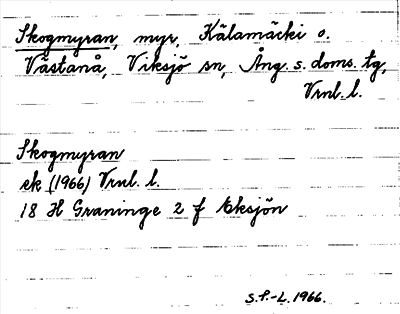 Skogmyran, myr, Kälamäcki o.
Västanå, Viksjö sn, Ång. s. doms. tg,
Vrnl. l.
Skogmyran
ek (1966) Vrnl. l.
18 H Graninge 2 f Eksjön
S.P.-L. 1966.